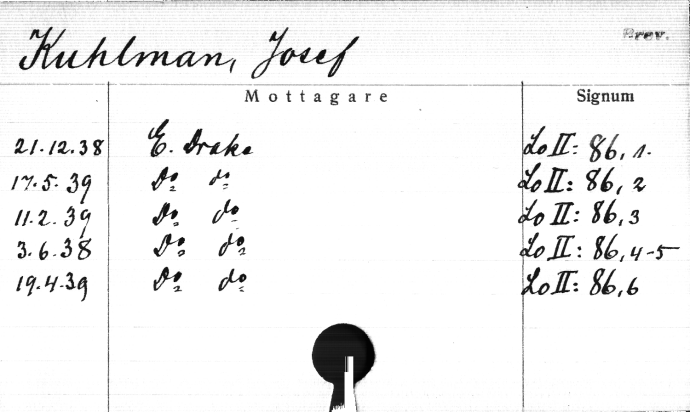 Kuhlman, Josef
Brev.
Mottagare Signum
21.12.38 E. Drake Lo II: 86, 1.
17.5.39 Do do Lo II: 86, 2
11.2.39 Do do Lo II: 86, 3
3.6.38 Do do Lo II: 86, 4-5
19.4.39 Do do Lo II: 86, 6